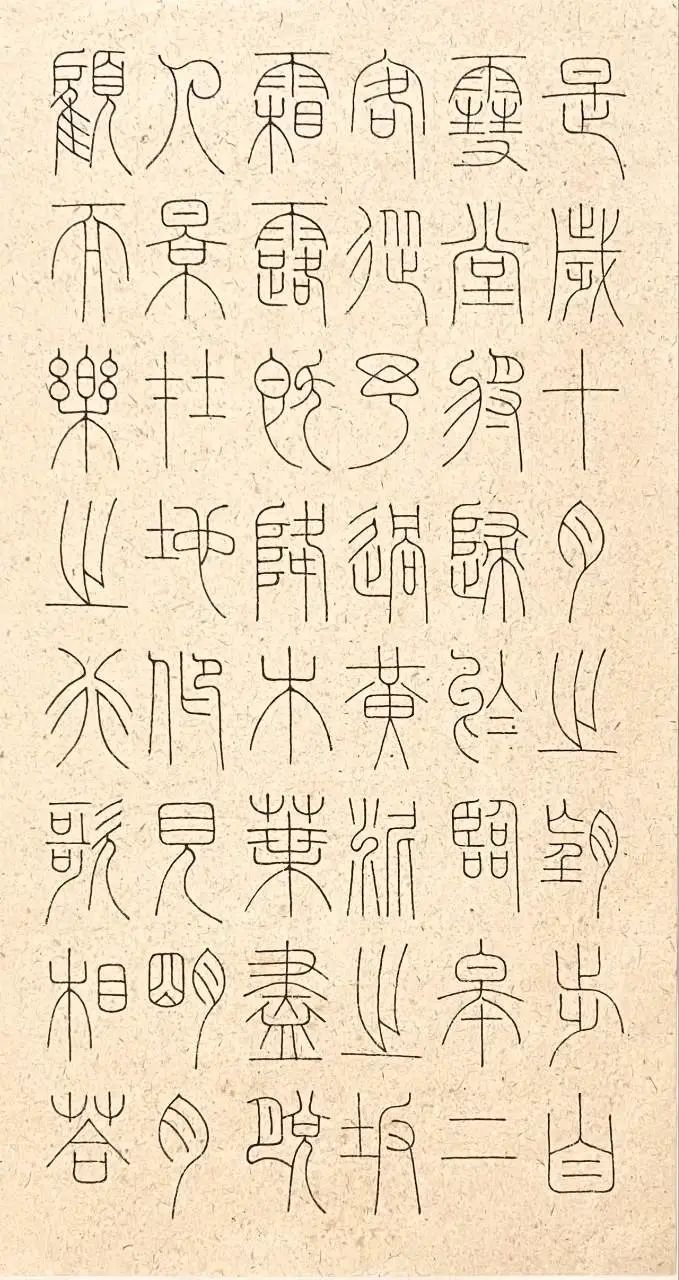 是歲十月之望步自
雪堂將歸於臨皋二
客從予過黃泥之坂
霜露既降木葉盡脫
人景在地仰見明月
顧而樂之行歌相荅